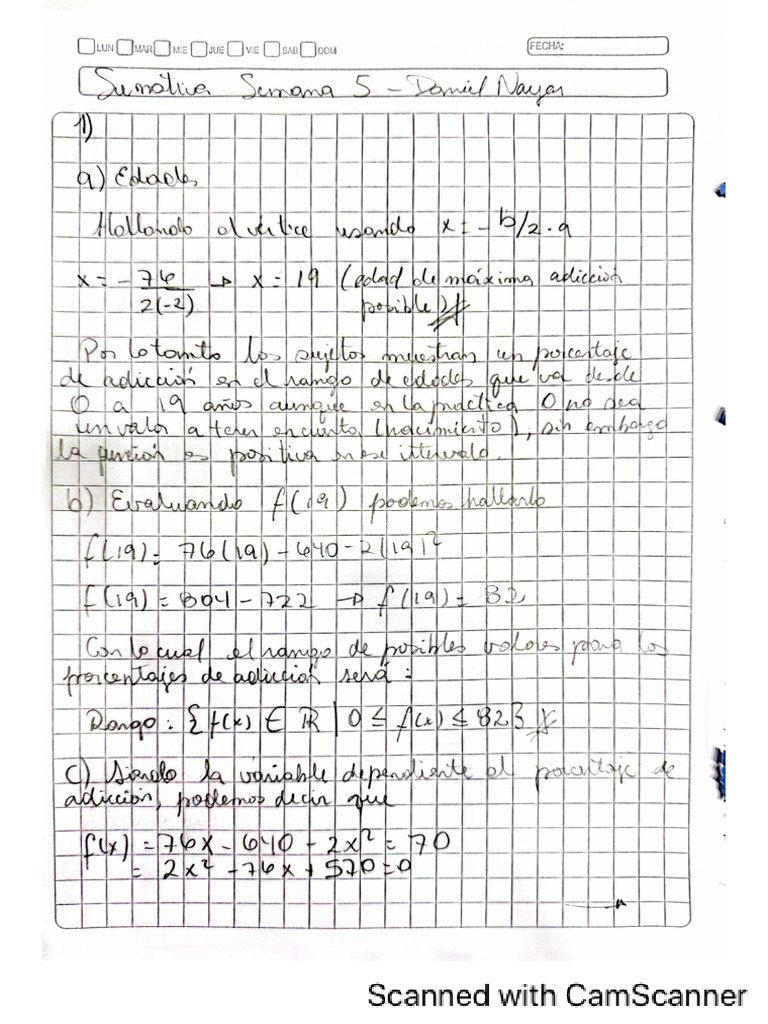 LUN MAR MIE JUE VIE SAB DOM FECHA:
Sumativa Semana 5 - Daniel
1)
a) Edades
Hallando el vértice usando x = - b/2·a
x = - 76 / 2(-2) → x = 19 (edad de máxima adicción
posible)
Por lo tanto los sujetos muestran un porcentaje
de adicción en el rango de edades que va desde
0 a 19 años aunque en la práctica 0 no sea
un valor a tener en cuenta (nacimiento), sin embargo
la función es positiva en ese intervalo.
b) Evaluando f(19) podemos hallarlo
f(19) = 76(19) - 640 - 2(19)²
f(19) = 804 - 722 → f(19) = 82
Con lo cual el rango de posibles valores para los
porcentajes de adicción será:
Rango: {f(x) ∈ ℝ | 0 ≤ f(x) ≤ 82}
c) Siendo la variable dependiente el porcentaje de
adicción, podemos decir que
f(x) = 76x - 640 - 2x² = 70
= 2x² - 76x + 570 = 0
→
Scanned with CamScanner